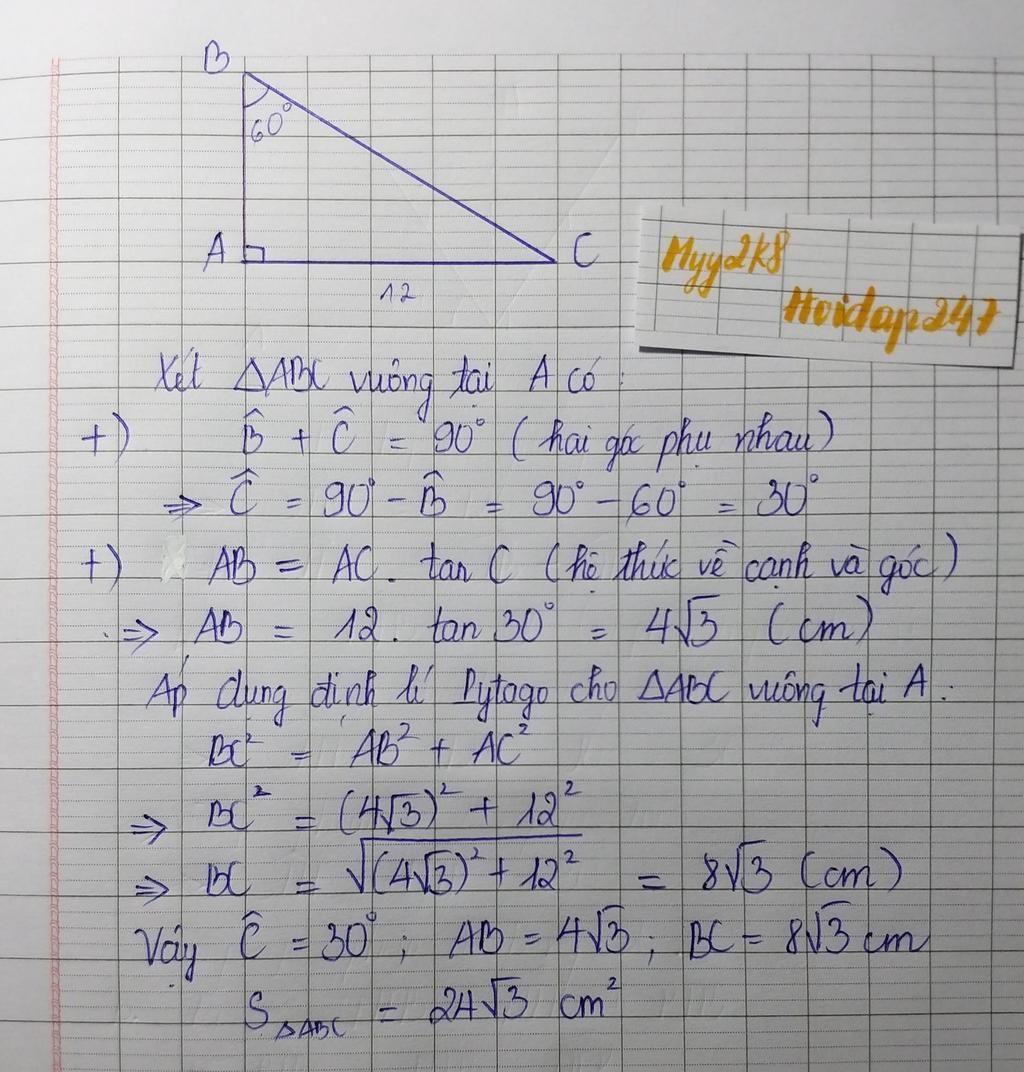 B
60°
A
C
12
Myy2k8
Hoidap247
Xét ΔABC vuông tại A có:
+) B̂ + Ĉ = 90° (hai góc phụ nhau)
⇒ Ĉ = 90° - B̂ = 90° - 60° = 30°
+) AB = AC. tan C (hệ thức về cạnh và góc)
⇒ AB = 12. tan 30° = 4√3 (cm)
Áp dụng định lí Pytago cho ΔABC vuông tại A:
BC² = AB² + AC²
⇒ BC² = (4√3)² + 12²
⇒ BC = √((4√3)² + 12²) = 8√3 (cm)
Vậy Ĉ = 30°; AB = 4√3; BC = 8√3 cm
S ΔABC = 24√3 cm²